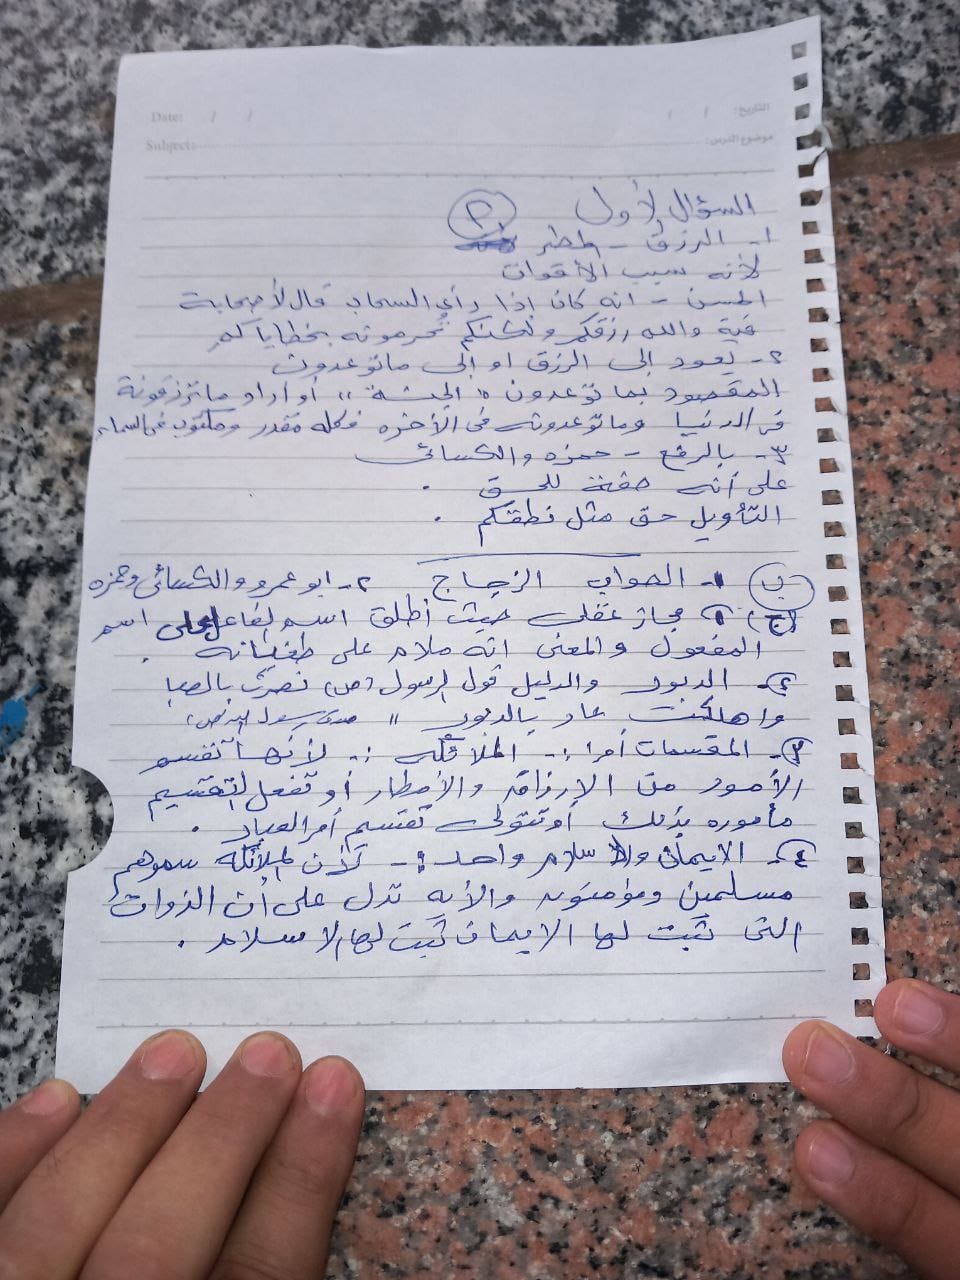 Date: / /
التاريخ: / /
Subject:
موضوع الدرس:
السؤال الأول (٢)
١- الرزق - المطر
لأنه سبب الأقوات
الحسن - انه كان إذا رأى السحاب قال لأصحابة
فية والله رزقكم ولكنكم تُحرمونه بخطاياكم
٢- يعود إلى الرزق او إلى ماتوعدون
المقصود بما توعدون "الجنة" أو اراد ما ترزقونة
فى الدنيا وما توعدونه فى الآخره فكله مقدر ومكتوب فى السماء
٣- بالرفع - حمزه والكسائى
على أنه صفة للحق .
التأويل حق مثل نطقكم .
(ب) ١- الصواب الزجاج ٢- ابو عمرو والكسائى وحمزه
(ج) ١ مجاز عقلى حيث أطلق اسم الفاعل على اسم
المفعول والمعنى انه ملام على طغيانه .
٢- الدبور والدليل قول الرسول (ص) نصرت بالصبا
واهلكت عاد بالدبور " صدق رسول الله (ص)
٣- المقسمات أمرا :- الملائكه :- لأنها تقسم
الأمور من الارزاق والأمطار أو تفعل التقسيم
مأموره بذلك أو تتولى تقسيم أمر العباد .
٤- الايمان والاسلام واحد :- لأن الملائكه سموهم
مسلمين ومؤمنين والأيه تدل على أن الذوات
التى ثبت لها الايمان ثبت لها الاسلام .